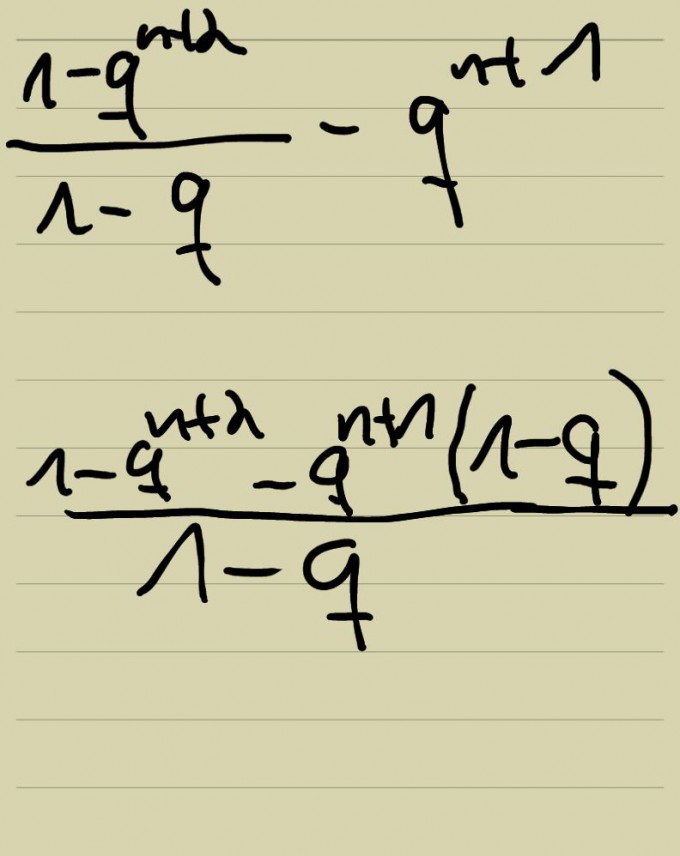 \frac{1-q^{n+2}}{1-q} - q^{n+1}
\frac{1-q^{n+2} - q^{n+1}(1-q)}{1-q}